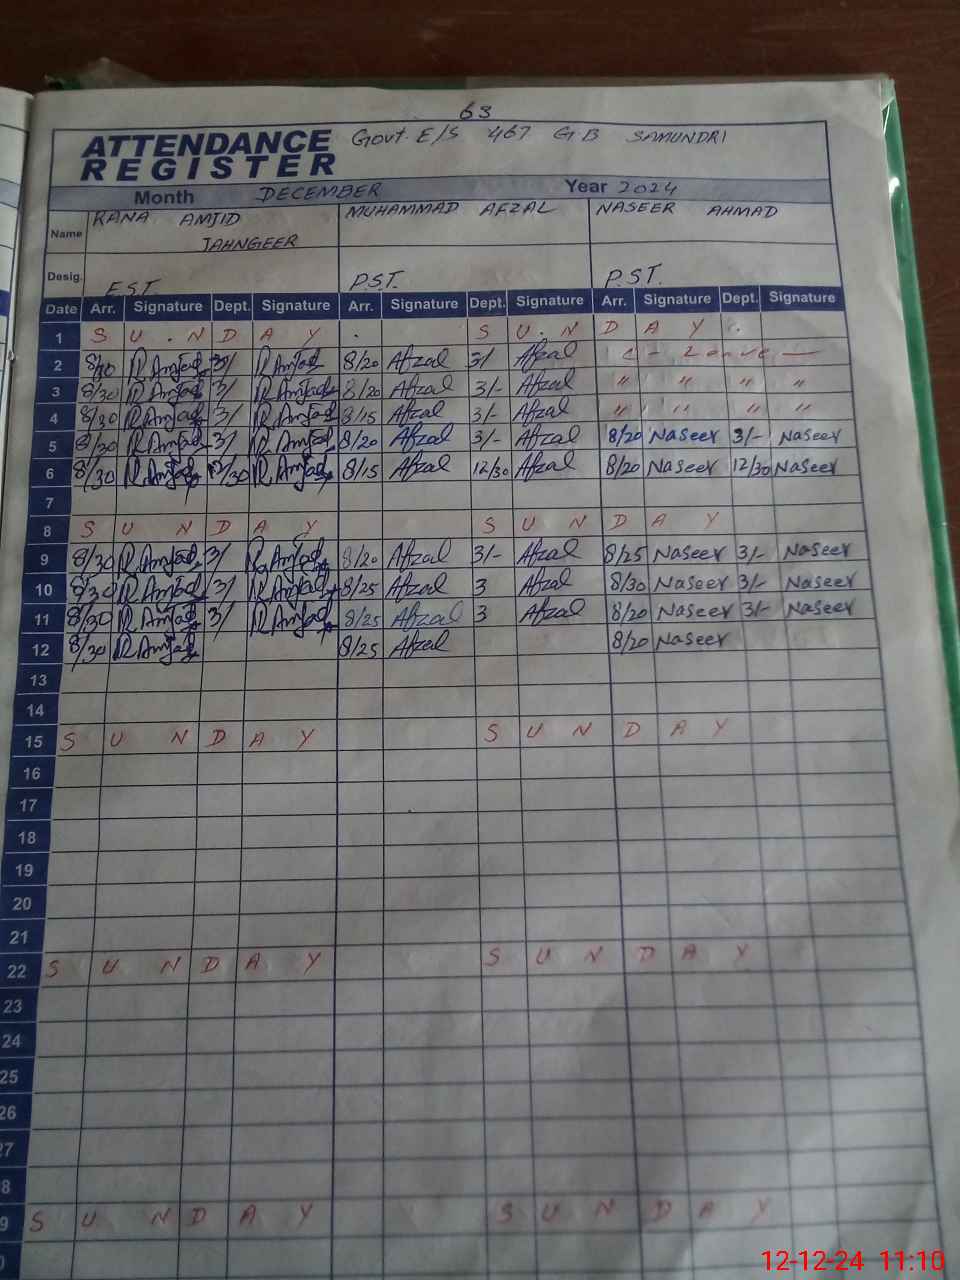 63
ATTENDANCE REGISTER Govt. E/S 467 G.B SAMUNDRI
Month DECEMBER Year 2024
Name RANA AMJID JAHNGEER MUHAMMAD AFZAL NASEER AHMAD
Desig. E.S.T P.S.T. P.S.T.
Date Arr. Signature Dept. Signature Arr. Signature Dept. Signature Arr. Signature Dept. Signature
1 S U . N D A Y . S U . N D A Y .
2 8/30 R.Amjad 3/ R.Amjad 8/20 Afzal 3/ Afzal C - Leave —
3 8/30 R.Amjad 3/ R.Amjad 8/20 Afzal 3/- Afzal " " " "
4 8/30 R.Amjad 3/ R.Amjad 8/15 Afzal 3/- Afzal " " " "
5 8/30 R.Amjad 3/ R.Amjad 8/20 Afzal 3/- Afzal 8/20 Naseer 3/- Naseer
6 8/30 R.Amjad 12/30 R.Amjad 8/15 Afzal 12/30 Afzal 8/20 Naseer 12/30 Naseer
7
8 S U N D A Y S U N D A Y
9 8/30 R.Amjad 3/ R.Amjad 8/20 Afzal 3/- Afzal 8/25 Naseer 3/- Naseer
10 8/30 R.Amjad 3/ R.Amjad 8/25 Afzal 3 Afzal 8/30 Naseer 3/- Naseer
11 8/30 R.Amjad 3/ R.Amjad 8/25 Afzal 3 Afzal 8/20 Naseer 3/- Naseer
12 8/30 R.Amjad 8/25 Afzal 8/20 Naseer
13
14
15 S U N D A Y S U N D A Y
16
17
18
19
20
21
22 S U N D A Y S U N D A Y
23
24
25
26
27
8
9 S U N D A Y S U N D A Y
0
12-12-24 11:10